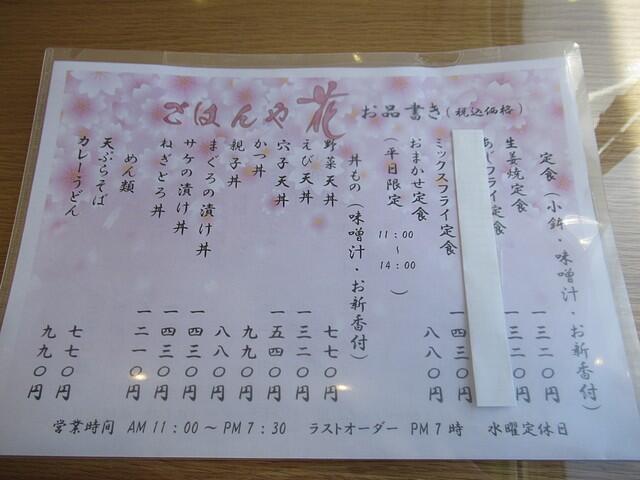 ごはんや 花 お品書き(税込価格)
定食(小鉢・味噌汁・お新香付)
生姜焼定食 一三二〇円
あじフライ定食 一三二〇円
ミックスフライ定食 一四三〇円
おまかせ定食 八八〇円
(平日限定 11:00～14:00)
丼もの(味噌汁・お新香付)
野菜天丼 七七〇円
えび天丼 一三二〇円
穴子天丼 一五四〇円
かつ丼 九九〇円
親子丼 八八〇円
まぐろの漬け丼 一四三〇円
サケの漬け丼 一四三〇円
ねぎとろ丼 一二一〇円
めん類
天ぷらそば 七七〇円
カレーうどん 九九〇円
営業時間 AM 11:00～PM 7:30 ラストオーダー PM 7時 水曜定休日